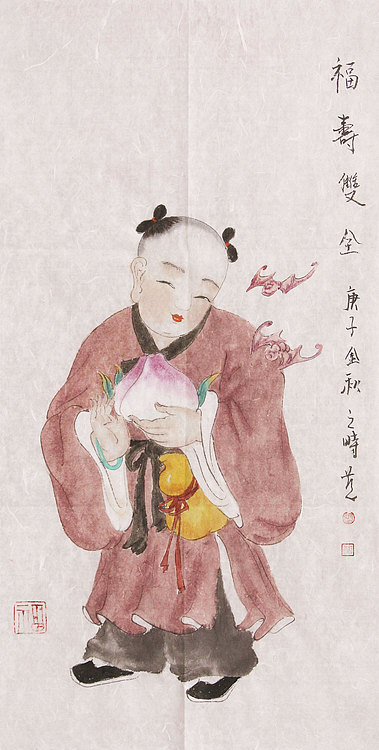 福壽雙全 庚子金秋之時